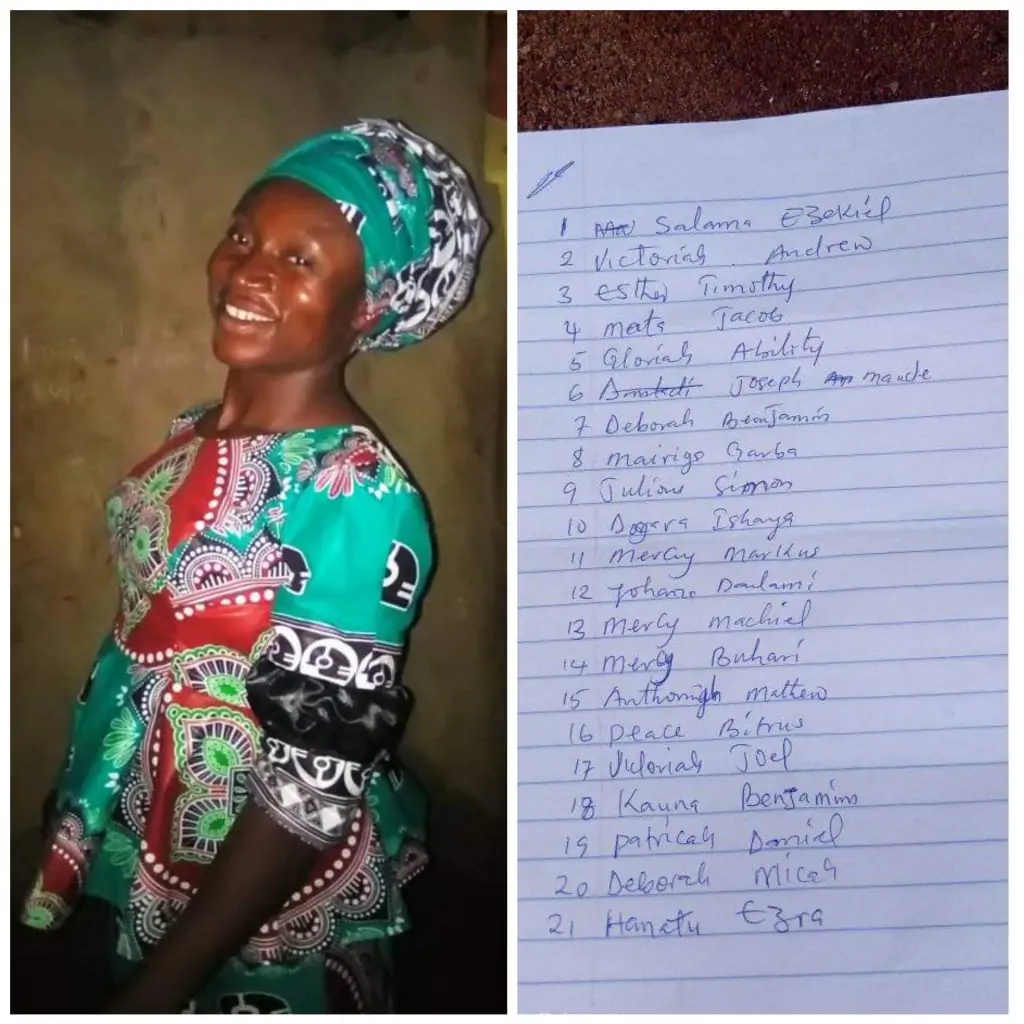 1 Salama Ezekiel
2 Victoriah Andrew
3 Esther Timothy
4 meats Jacob
5 Gloriah Ability
6 Joseph maude
7 Deborah Benjamin
8 mairigo Garba
9 Julious Simon
10 Dogara Ishaya
11 mercy markus
12 Yohana Danlami
13 mercy machiel
14 mercy Buhari
15 Anthoniah mattew
16 peace Bitrus
17 Victoriah Joel
18 Kauna Benjamin
19 patricah Daniel
20 Deborah Micah
21 Hanatu Ezra